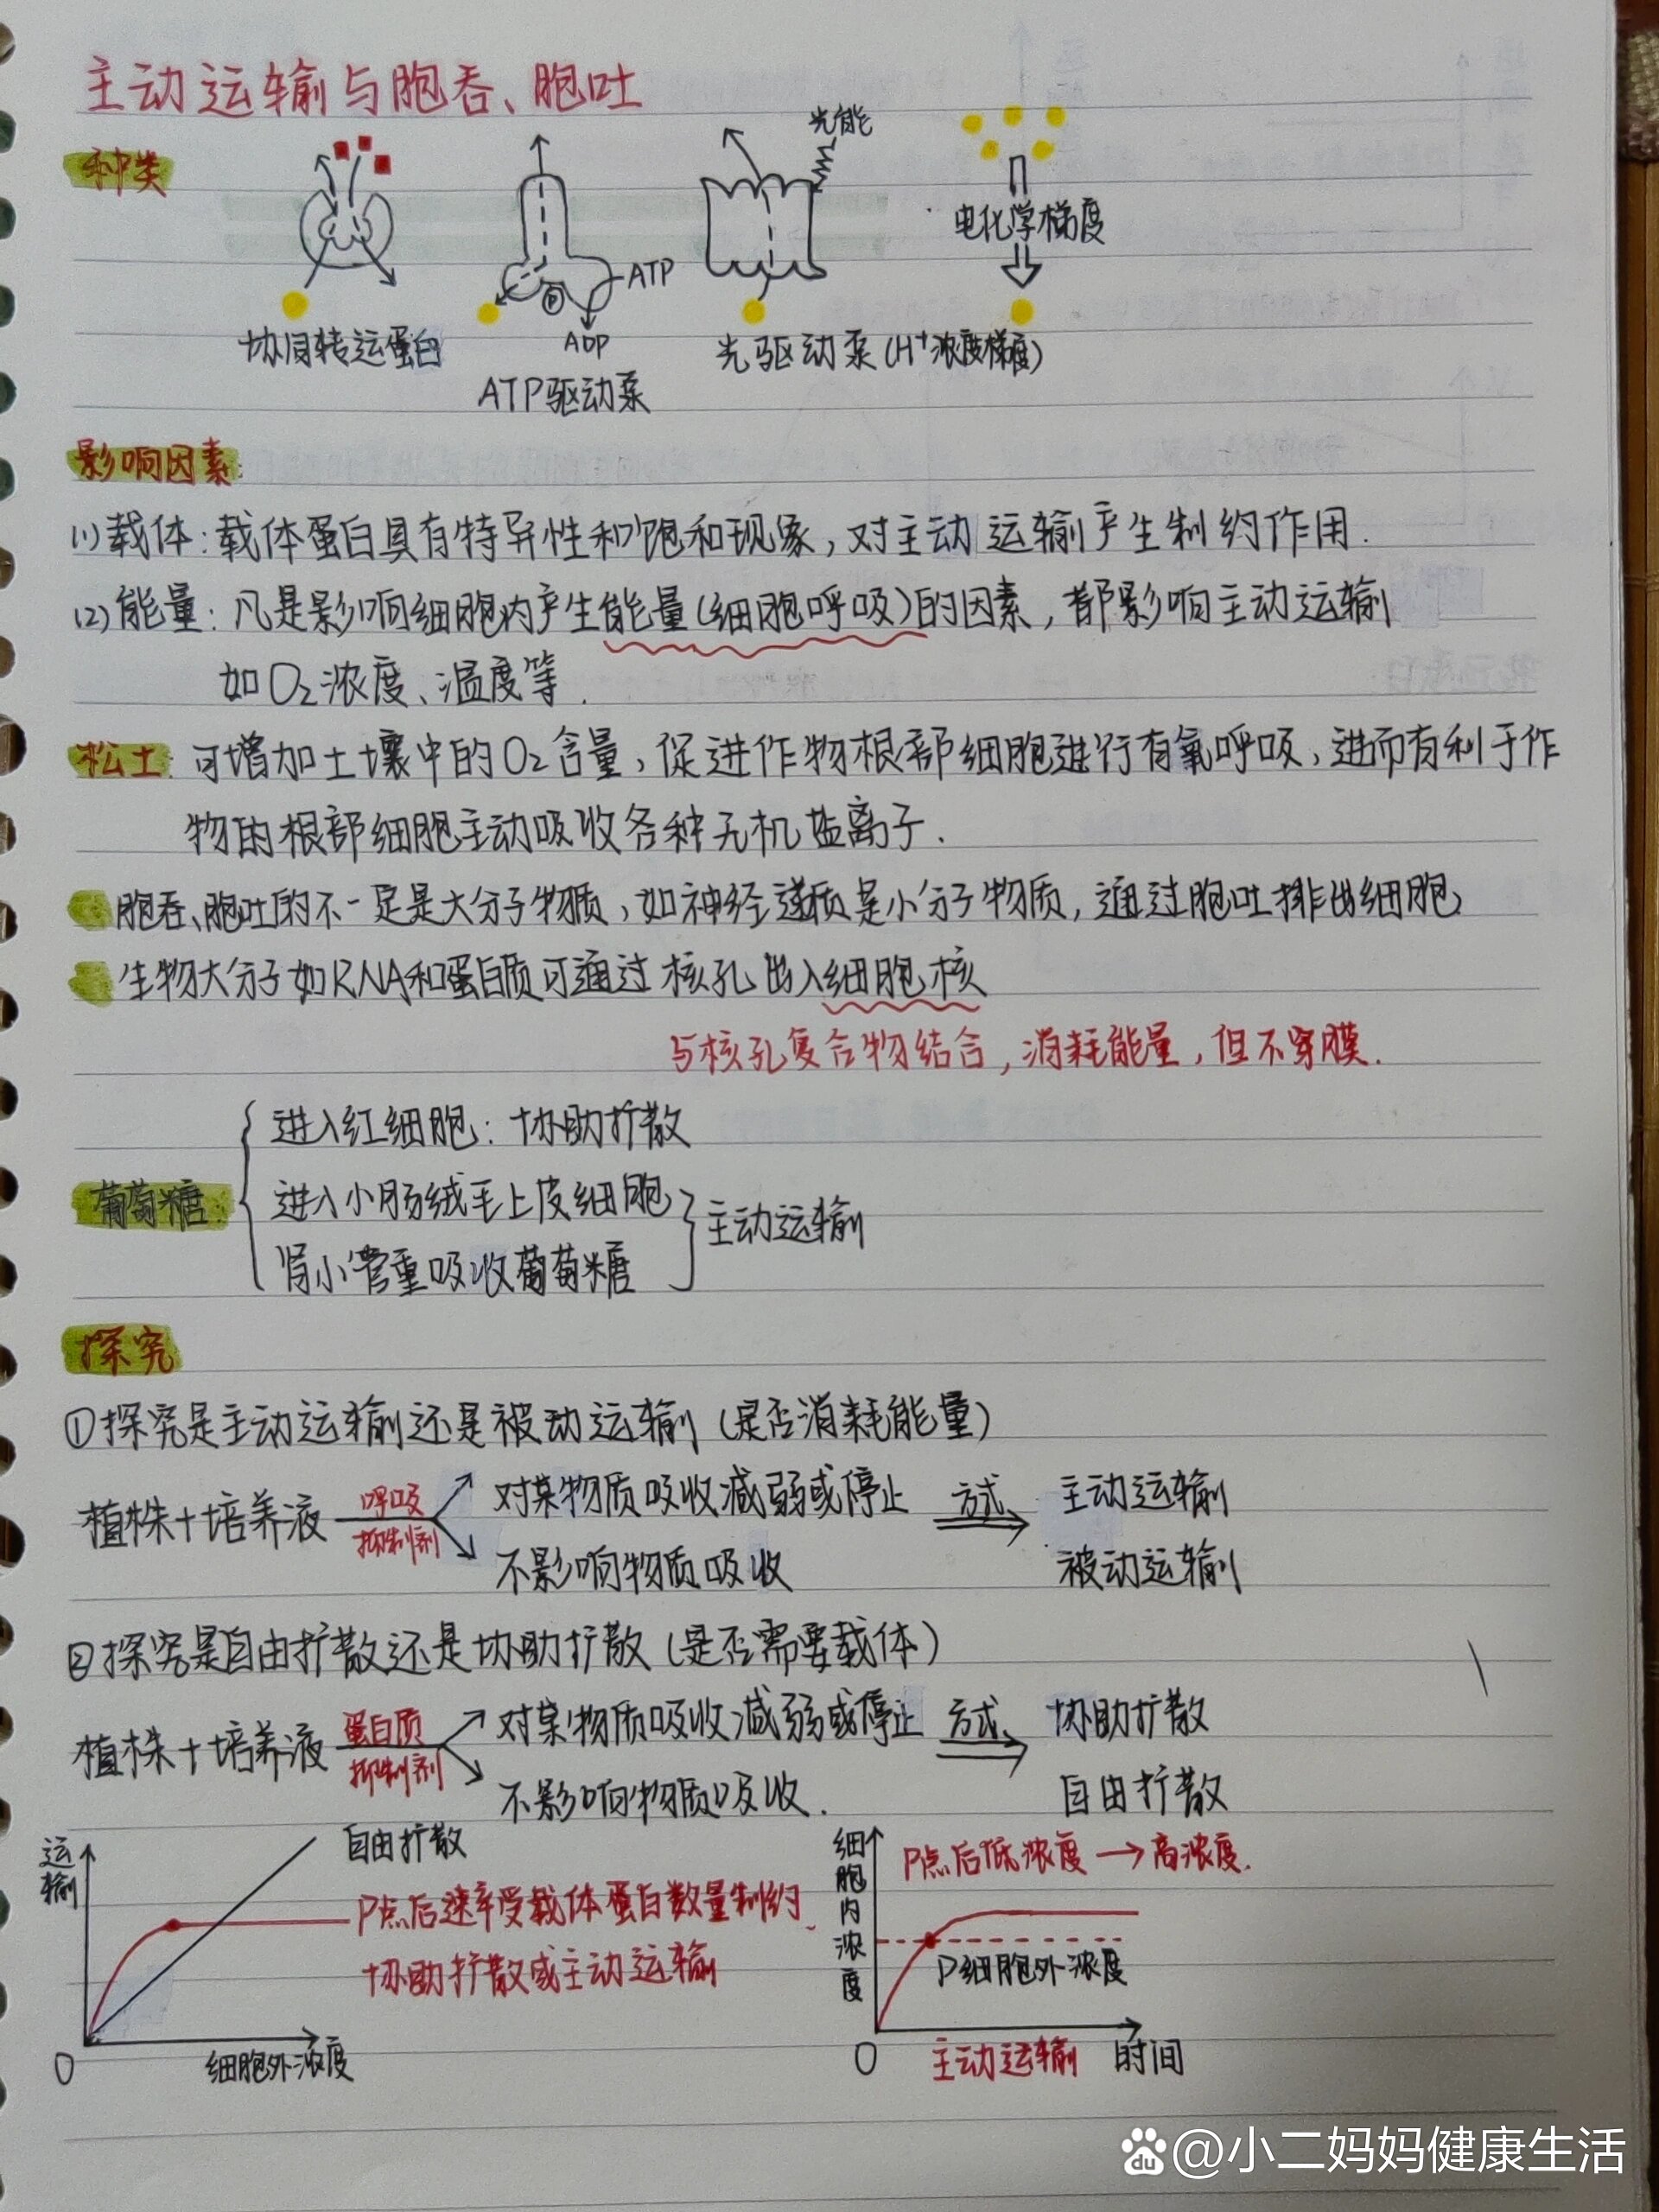 主动运输与胞吞、胞吐
种类
光能
电化学梯度
ATP
P
ADP
协同转运蛋白
ATP驱动泵
光驱动泵(H⁺浓度梯度)
影响因素:
(1)载体:载体蛋白具有特异性和饱和现象,对主动运输产生制约作用.
(2)能量:凡是影响细胞内产生能量(细胞呼吸)的因素,都影响主动运输
如O₂浓度、温度等.
松土:可增加土壤中的O₂含量,促进作物根部细胞进行有氧呼吸,进而有利于作
物的根部细胞主动吸收各种无机盐离子.
胞吞、胞吐的不一定是大分子物质,如神经递质是小分子物质,通过胞吐排出细胞
生物大分子如RNA和蛋白质可通过核孔出入细胞核
与核孔复合物结合,消耗能量,但不穿膜.
葡萄糖:
进入红细胞:协助扩散
进入小肠绒毛上皮细胞
肾小管重吸收葡萄糖
主动运输
探究
①探究是主动运输还是被动运输(是否消耗能量)
植株+培养液 呼吸抑制剂 对某物质吸收减弱或停止 方式 主动运输
不影响物质吸收 被动运输
②探究是自由扩散还是协助扩散(是否需要载体)
植株+培养液 蛋白质抑制剂 对某物质吸收减弱或停止 方式 协助扩散
不影响物质吸收. 自由扩散
运输
自由扩散
P点后速率受载体蛋白数量制约
协助扩散或主动运输
O
细胞外浓度
细胞内浓度
P点后低浓度→高浓度.
P细胞外浓度
O
主动运输
时间
du
@小二妈妈健康生活